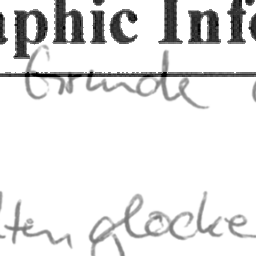 aphic Info
Gründe
ttenglocke